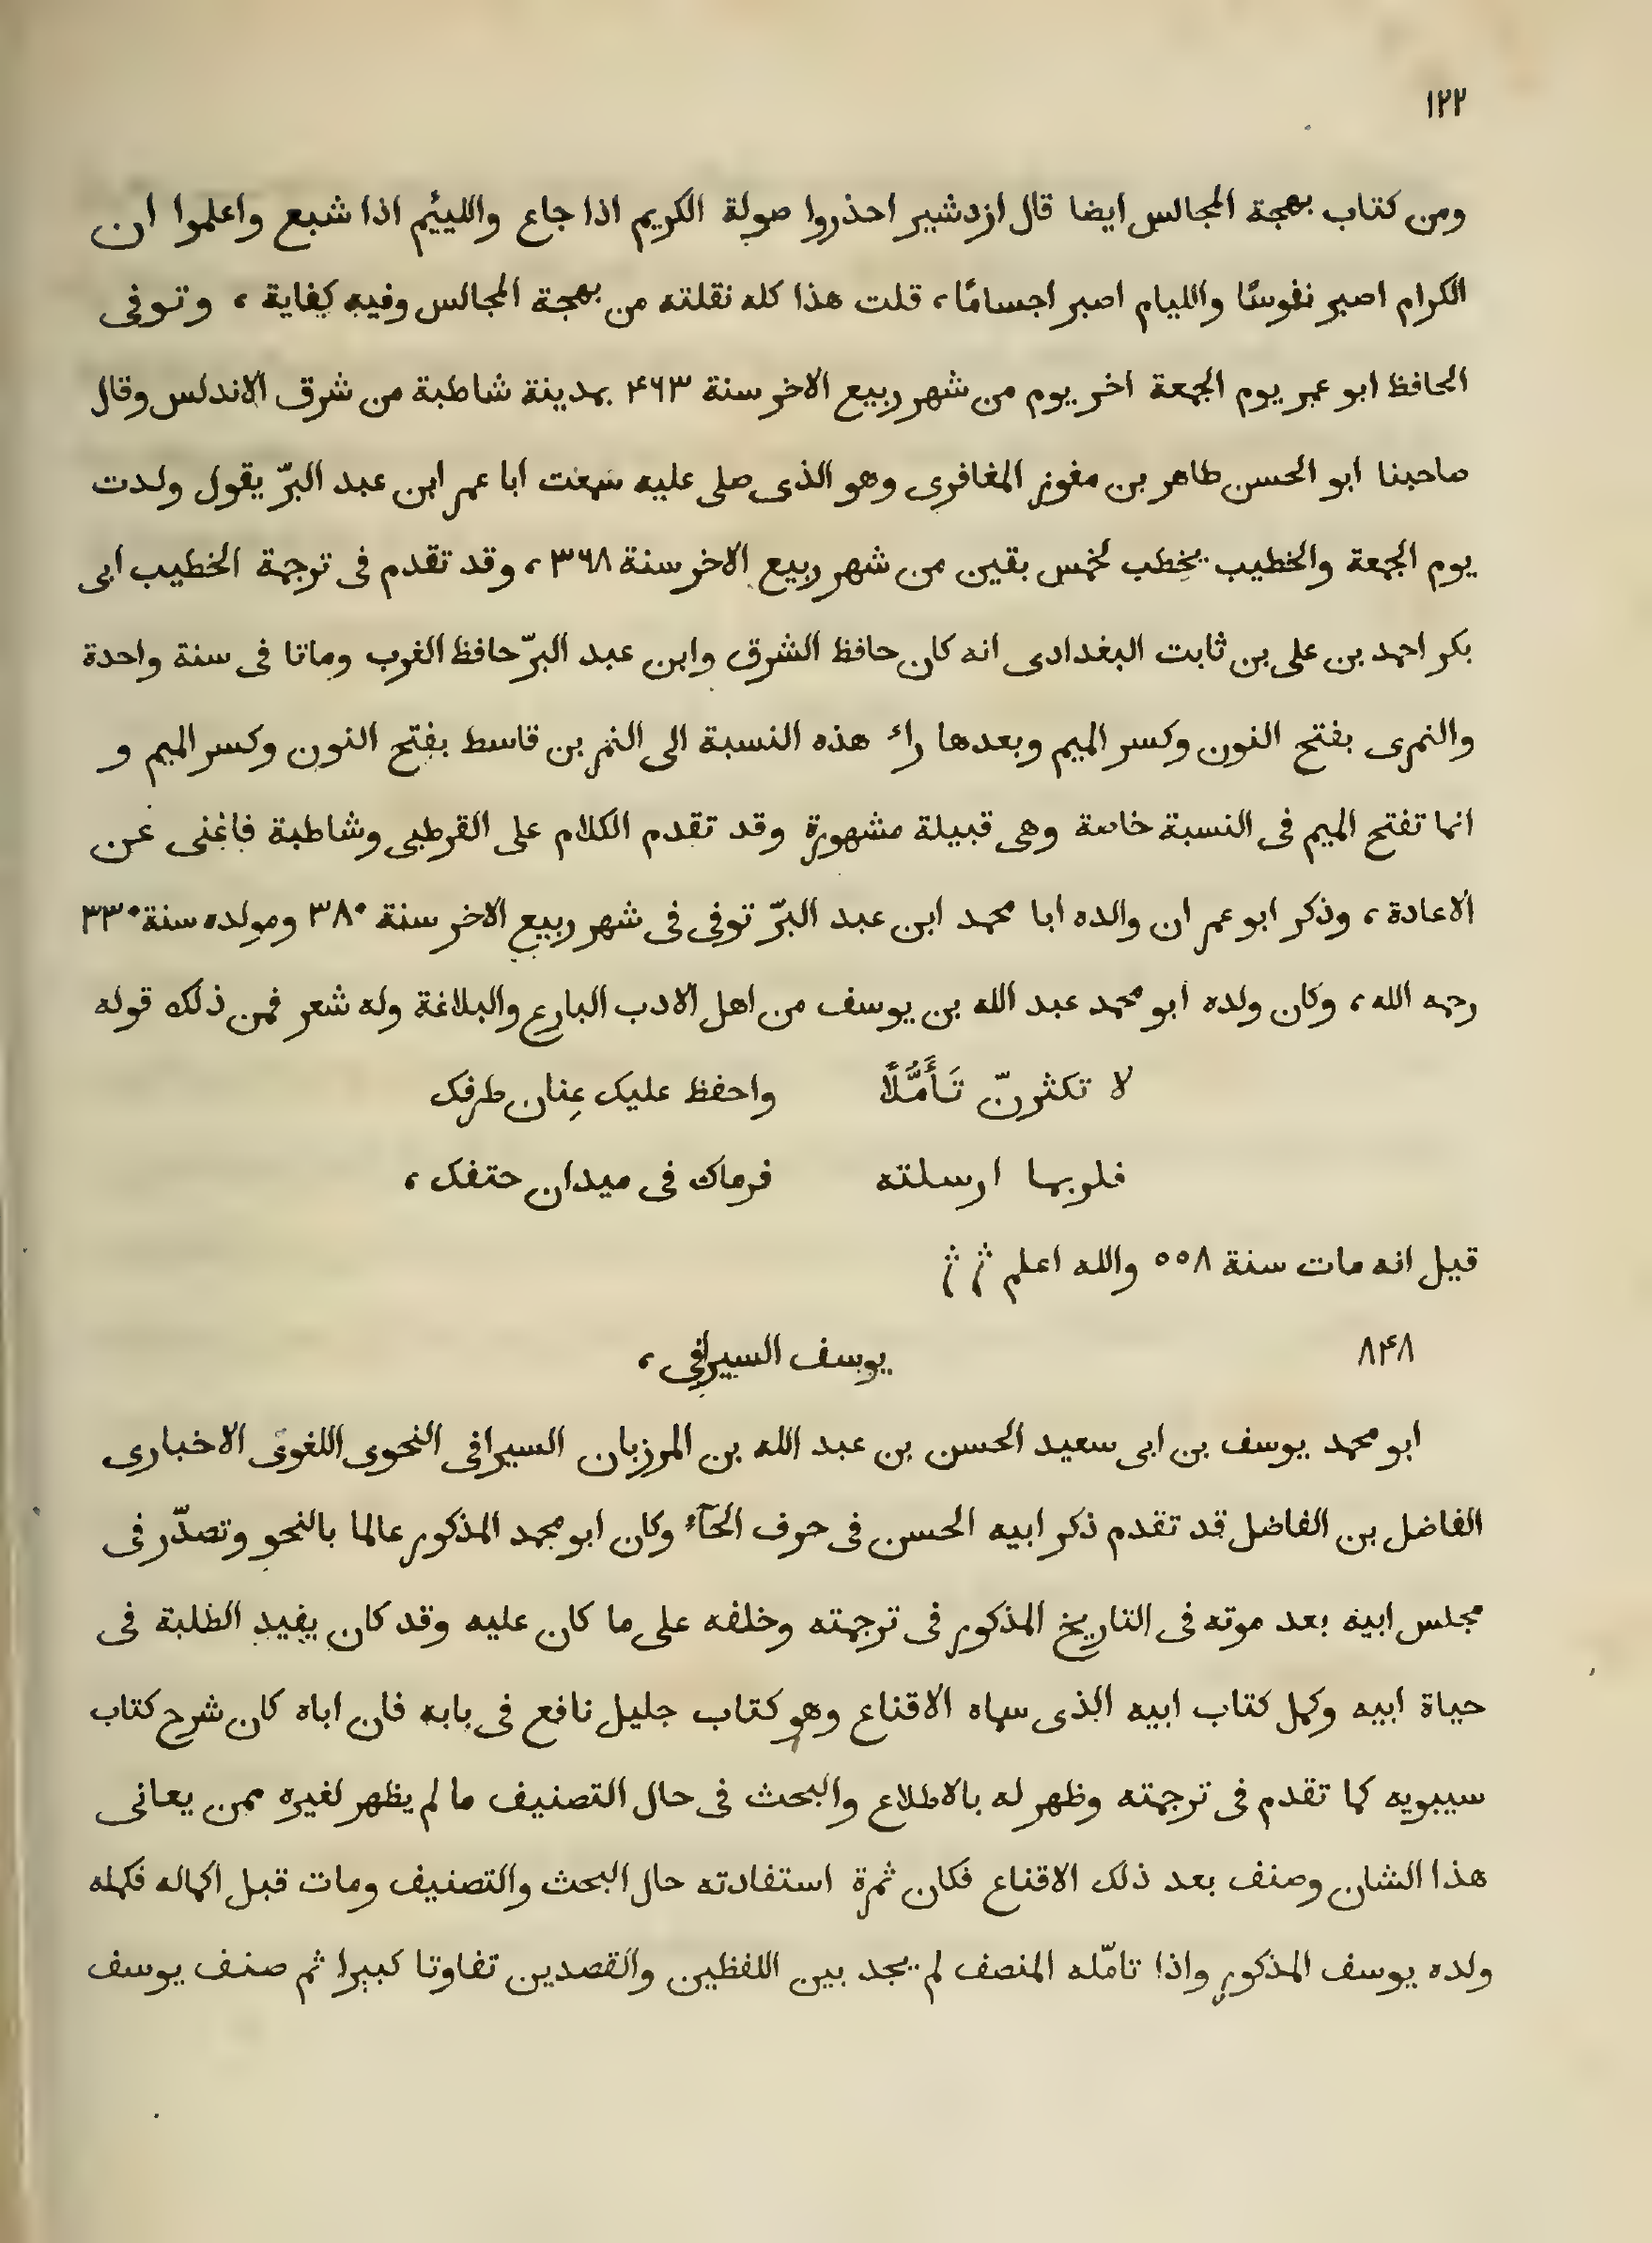 ١٢٢
ومن كتاب بهجة المجالس ايضا قال ازدشير احذروا صولة الكريم اذا جاع والليئم اذا شبع واعلموا ان
الكرام اصبر نفوسًا والليام اصبر اجسامًا، قلت هذا كله نقلته من بهجة المجالس وفيه كفاية، وتوفى
الحافظ ابو عمر يوم الجمعة اخر يوم من شهر ربيع الاخر سنة ۴٦٣ بمدينة شاطبة من شرق الاندلس وقال
صاحبنا ابو الحسن طاهر بن مغوز المغافرى وهو الذى صلى عليه سمعت ابا عمر ابن عبد البرّ يقول ولدت
يوم الجمعة والخطيب يخطب لخمس بقين من شهر ربيع الاخر سنة ٣٦٨، وقد تقدم فى ترجمة الخطيب ابى
بكر احمد بن على بن ثابت البغدادى انه كان حافظ الشرق وابن عبد البرّ حافظ الغرب وماتا فى سنة واحدة
والنمرى بفتح النون وكسر الميم وبعدها راء هذه النسبة الى النمر بن قاسط بفتح النون وكسر الميم و
انما تفتح الميم فى النسبة خاصة وهى قبيلة مشهورة وقد تقدم الكلام على القرطبى وشاطبة فاغنى عن
الاعادة، وذكر ابو عمر ان والده ابا محمد ابن عبد البرّ توفى فى شهر ربيع الاخر سنة ٣٨٠ ومولده سنة ٣٣٠
رحمه الله، وكان ولده ابو محمد عبد الله بن يوسف من اهل الادب البارع والبلاغة وله شعر فمن ذلك قوله
لا تكثرنّ تَأَمُّلًا واحفظ عليك عِنان طرفك
فلربما ارسلته فرماك فى ميدان حتفك،
قيل انه مات سنة ٥٥٨ والله اعلم
٨۴٨ يوسف السيرافى،
ابو محمد يوسف بن ابى سعيد الحسن بن عبد الله بن المرزبان السيرافى النحوى اللغوى الاخبارى
الفاضل بن الفاضل قد تقدم ذكر ابيه الحسن فى حرف الحآء وكان ابو محمد المذكور عالما بالنحو وتصدّر فى
مجلس ابيه بعد موته فى التاريخ المذكور فى ترجمته وخلفه على ما كان عليه وقد كان يفيد الطلبة فى
حياة ابيه وكمل كتاب ابيه الذى سماه الاقناع وهو كتاب جليل نافع فى بابه فان اباه كان شرح كتاب
سيبويه كما تقدم فى ترجمته وظهر له بالاطلاع والبحث فى حال التصنيف ما لم يظهر لغيره ممن يعانى
هذا الشان وصنف بعد ذلك الاقناع فكان ثمرة استفادته حال البحث والتصنيف ومات قبل اكماله فكمله
ولده يوسف المذكور واذا تامّله المنصف لم يجد بين اللفظين والقصدين تفاوتا كبيرا ثم صنف يوسف